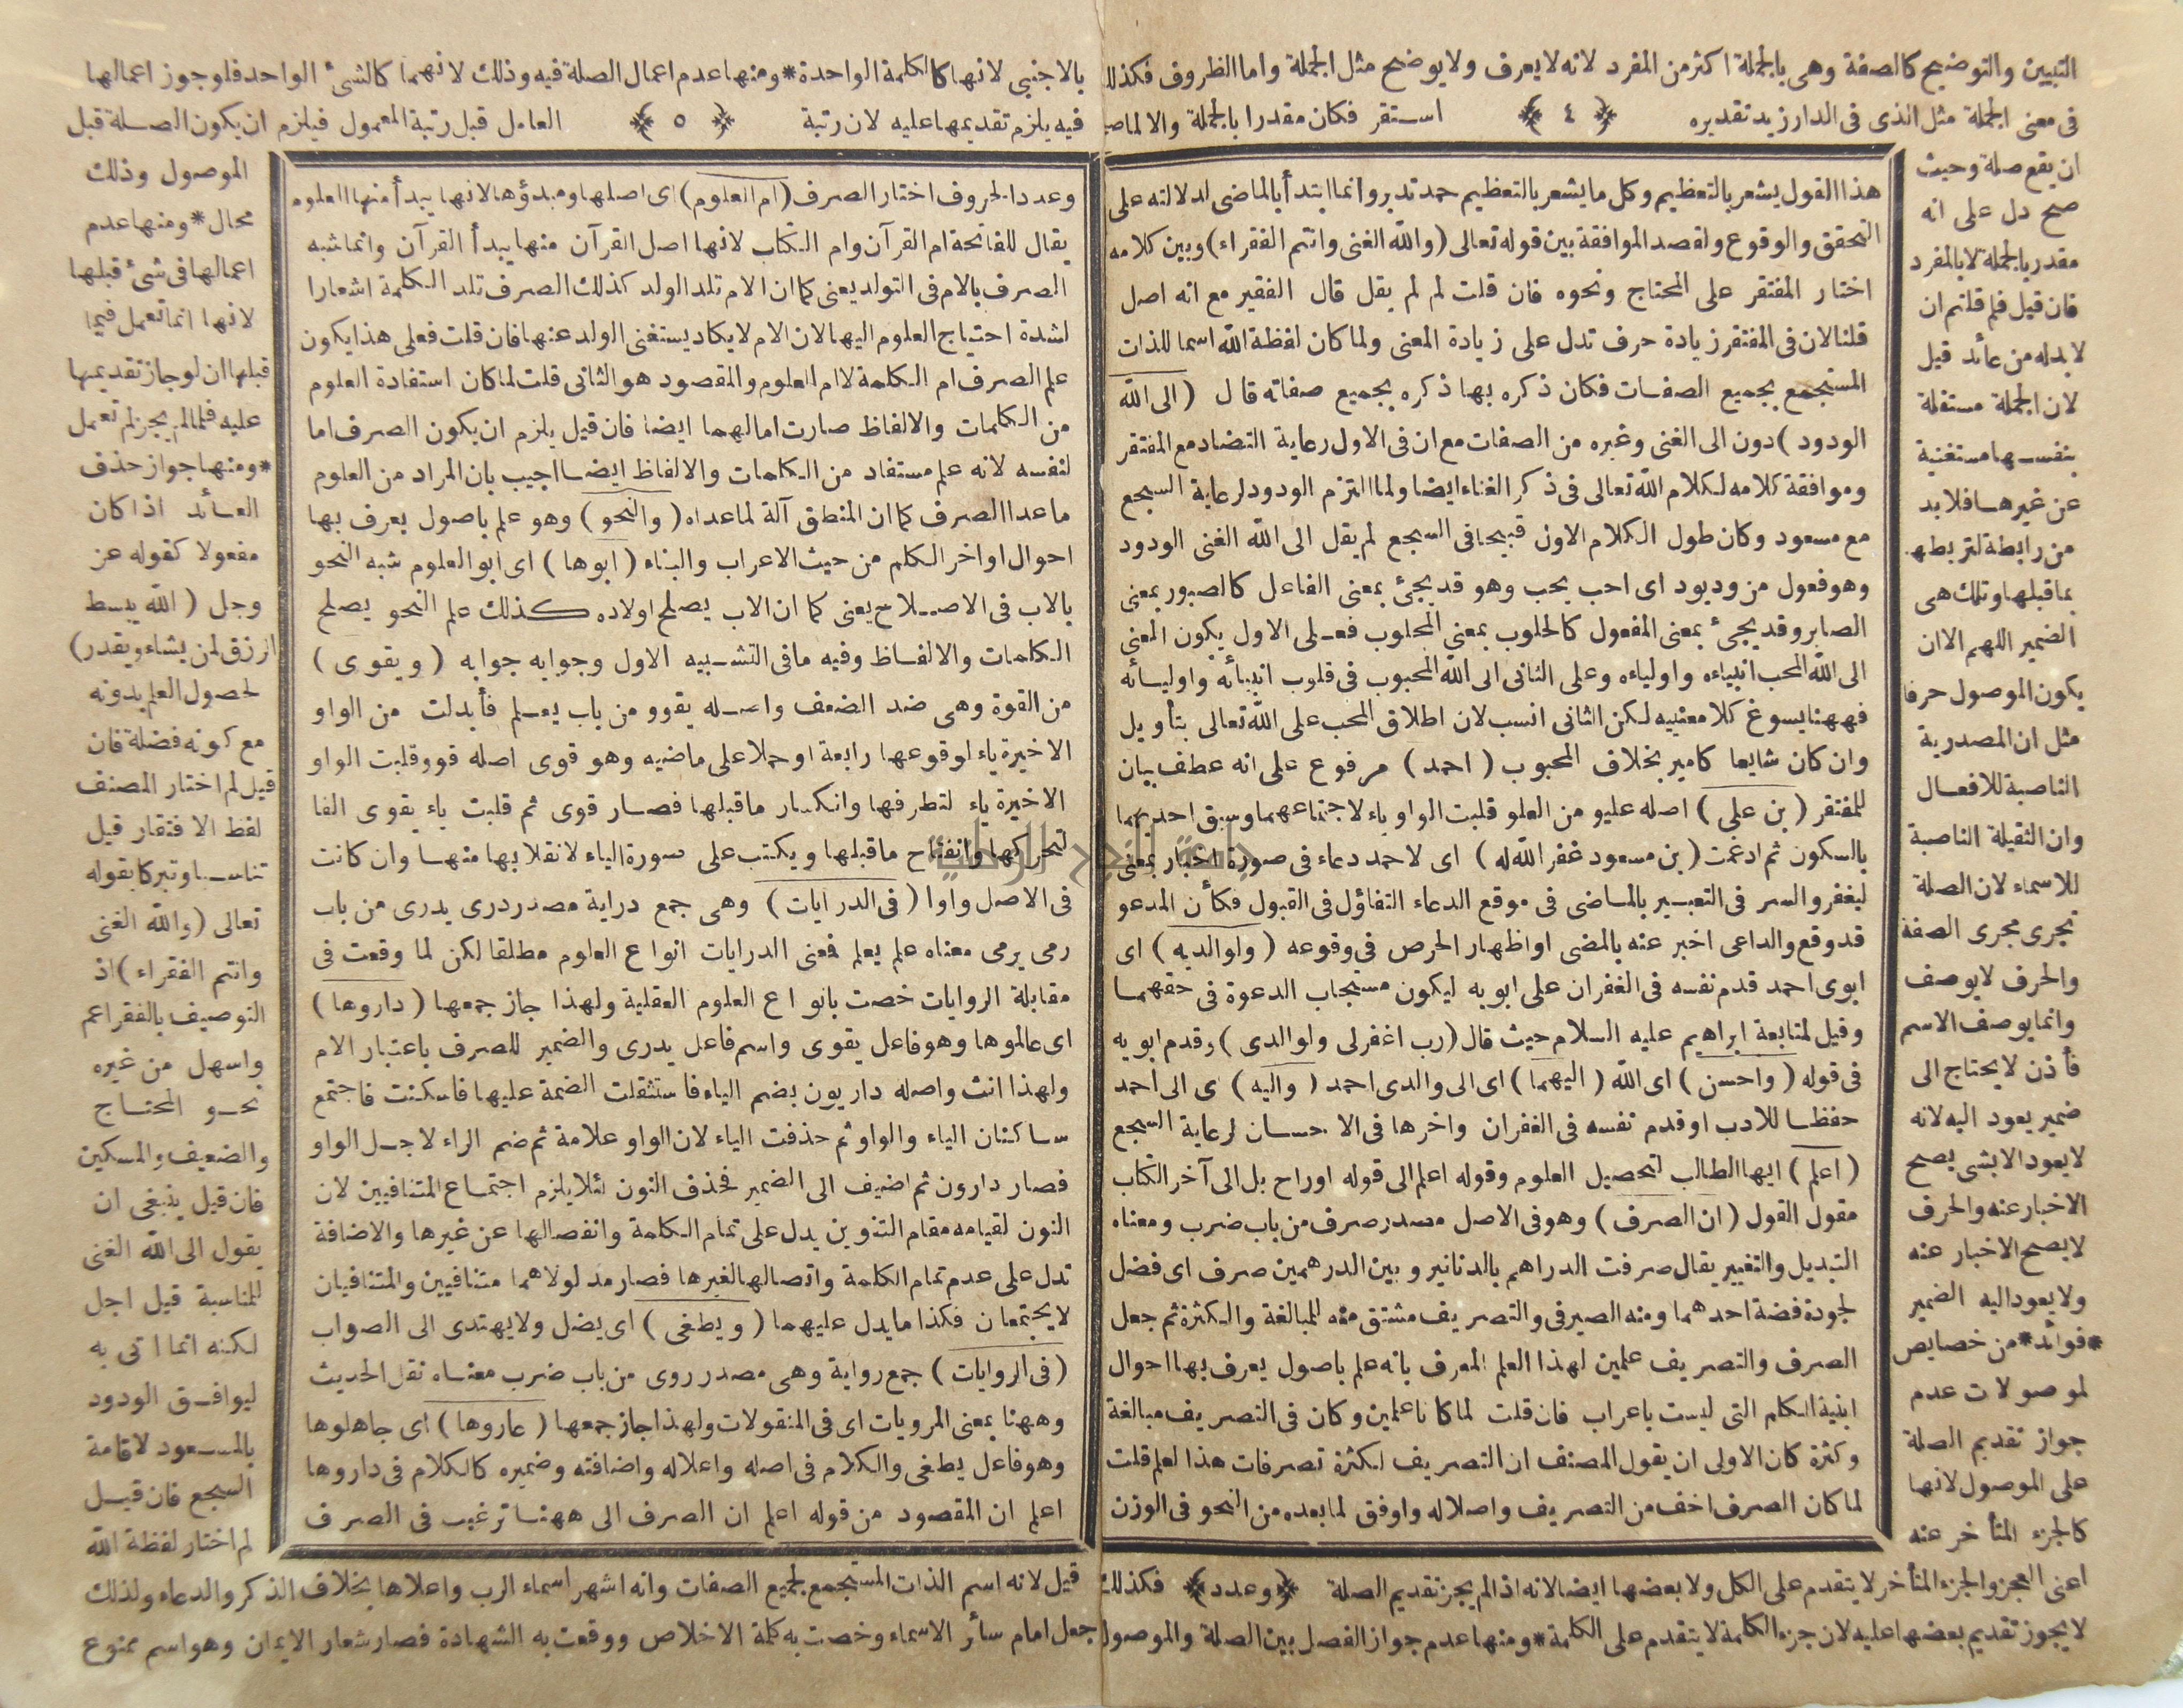 التبيين والتوضيح كالصفة وهى بالجملة اكثر من المفرد لانه لايعرف ولايوضح مثل الجملة واما الظروف فكذلك
فى معنى الجملة مثل الذى فى الدار زيد تقديره ﴿ ٤ ﴾ استقر فكان مقدرا بالجملة والا لماصح
هذا القول يشعر بالتعظيم وكل ما يشعر بالتعظيم حمد تدبر وانما ابتدأ بالماضى لدلالته على
التحقق والوقوع ولقصد الموافقة بين قوله تعالى (والله الغنى وانتم الفقراء) وبين كلامه
اختار المفتقر على المحتاج ونحوه فان قلت لم لم يقل قال الفقير مع انه اصل
قلنا لان فى المفتقر زيادة حرف تدل على زيادة المعنى ولما كان لفظة الله اسما للذات
المستجمع بجميع الصفات فكان ذكره بها ذكره بجميع صفاته قال (الى الله
الودود) دون الى الغنى وغيره من الصفات مع ان فى الاول رعاية التضاد مع المفتقر
وموافقة كلامه لكلام الله تعالى فى ذكر الغناء ايضا ولما التزم الودود لرعاية السجع
مع مسعود وكان طول الكلام الاول قبيحا فى السجع لم يقل الى الله الغنى الودود
وهو فعول من وديود اى احب يحب وهو قد يجئ بمعنى الفاعل كالصبور بمعنى
الصابر وقد يجئ بمعنى المفعول كالحلوب بمعنى المحلوب فعلى الاول يكون المعنى
الى الله المحب انبياءه واولياءه وعلى الثانى الى الله المحبوب فى قلوب انبيائه واوليائه
فههنا يسوغ كلا معنييه لكن الثانى انسب لان اطلاق المحب على الله تعالى بتأويل
وان كان شايعا كامير بخلاف المحبوب (احمد) مرفوع على انه عطف بيان
للمفتقر (بن على) اصله عليو من العلو قلبت الواو ياء لاجتماعهما وسبق احدهما
بالسكون ثم ادغمت (بن مسعود غفر الله له) اى لاحمد دعاء فى صورة اخبار بمعنى
ليغفر والسر فى التعبير بالماضى فى موقع الدعاء التفاؤل فى القبول فكأن المدعو
قد وقع والداعى اخبر عنه بالمضى او اظهار الحرص فى وقوعه (ولوالديه) اى
ابوى احمد قدم نفسه فى الغفران على ابويه ليكون مستجاب الدعوة فى حقهما
وقيل لمتابعة ابراهيم عليه السلام حيث قال (رب اغفرلى ولوالدى) وقدم ابويه
فى قوله (واحسن) اى الله (اليهما) اى الى والدى احمد (واليه) ى الى احمد
حفظا للادب او قدم نفسه فى الغفران واخرها فى الاحسان لرعاية السجع
(اعلم) ايها الطالب لتحصيل العلوم وقوله اعلم الى قوله اوراح بل الى آخر الكتاب
مقول القول (ان الصرف) وهو فى الاصل مصدر صرف من باب ضرب ومعناه
التبديل والتغيير يقال صرفت الدراهم بالدنانير وبين الدرهمين صرف اى فضل
لجودة فضة احدهما ومنه الصيرفى والتصريف مشتق منه للمبالغة والكثرة ثم جعل
الصرف والتصريف علمين لهذا العلم المعرف بانه علم باصول يعرف بها احوال
ابنية الكلم التى ليست باعراب فان قلت لما كانا علمين وكان فى التصريف مبالغة
وكثرة كان الاولى ان يقول المصنف ان التصريف لكثرة تصرفات هذا لعلم قلت
لما كان الصرف اخف من التصريف واصلاله واوفق لما بعده من النحو فى الوزن
ان يقع صلة وحيث
صح دل على انه
مقدر بالجملة لا بالمفرد
فان قيل فلم قلتم ان
لابدله من عائد قيل
لان الجملة مستقلة
بنفسها مستغنية
عن غيرها فلابد
من رابطة لتربطها
بما قبلها وتلك هى
الضمير اللهم الا ان
يكون الموصول حرفا
مثل ان المصدرية
الناصبة للافعال
وان الثقيلة الناصبة
للاسماء لان الصلة
تجرى مجرى الصفة
والحرف لا يوصف
وانما يوصف الاسم
فأذن لا يحتاج الى
ضمير يعود اليه لانه
لا يعود الا بشى يصح
الاخبار عنه والحرف
لا يصح الاخبار عنه
ولا يعود اليه الضمير
*فوائد* من خصايص
لموصولات عدم
جواز تقديم الصلة
على الموصول لانها
كالجزء المتأخر عنه
اعنى العجز والجزء المتأخر لا يتقدم على الكل ولا بعضها ايضا لانه اذا لم يجز تقديم الصلة ﴿وعدد﴾ فكذلك
لا يجوز تقديم بعضها عليه لان جزء الكلمة لا يتقدم على الكلمة * ومنها عدم جواز الفصل بين الصلة والموصول
بالاجنبى لانها كالكلمة الواحدة * ومنها عدم اعمال الصلة فيه وذلك لانهما كالشئ الواحد فلو جوز اعمالها
فيه يلزم تقديمها عليه لان رتبة ﴿ ٥ ﴾ العامل قبل رتبة المعمول فيلزم ان يكون الصلة قبل
وعدد الحروف اختار الصرف (ام العلوم) اى اصلها ومبدؤها لانها يبدأ منها العلوم
يقال للفاتحة ام القرآن وام الكتاب لانها اصل القرآن منها يبدأ القرآن وانما شبه
الصرف بالام فى التولد يعنى كما ان الام تلد الولد كذلك الصرف تلد الكلمة اشعارا
لشدة احتياج العلوم اليها لان الام لا يكاد يستغنى الولد عنها فان قلت فعلى هذا يكون
علم الصرف ام الكلمة لا ام العلوم والمقصود هو الثانى قلت لما كان استفادة العلوم
من الكلمات والالفاظ صارت اما لهما ايضا فان قيل يلزم ان يكون الصرف اما
لنفسه لانه علم مستفاد من الكلمات والالفاظ ايضا اجيب بان المراد من العلوم
ماعدا الصرف كما ان المنطق آلة لما عداه (والنحو) وهو علم باصول يعرف بها
احوال اواخر الكلم من حيث الاعراب والبناء (ابوها) اى ابو العلوم شبه النحو
بالاب فى الاصلاح يعنى كما ان الاب يصلح اولاده كذلك علم النحو يصلح
الكلمات والالفاظ وفيه ما فى التشبيه الاول وجوابه جوابه (ويقوى)
من القوة وهى ضد الضعف واصله يقوو من باب يعلم فأبدلت من الواو
الاخيرة ياء لوقوعها رابعة او حملا على ماضيه وهو قوى اصله قوو قلبت الواو
الاخيرة ياء لتطرفها وانكسار ما قبلها فصار قوى ثم قلبت ياء يقوى الفا
لتحركها وانفتاح ما قبلها ويكتب على صورة الياء لانقلابها منها وان كانت
فى الاصل واوا (فى الدرايات) وهى جمع دراية مصدر درى يدرى من باب
رمى يرمى معناه علم يعلم فمعنى الدرايات انواع العلوم مطلقا لكن لما وقعت فى
مقابلة الروايات خصت بانواع العلوم العقلية ولهذا جاز جمعها (داروها)
اى عالموها وهو فاعل يقوى واسم فاعل يدرى والضمير للصرف باعتبار الام
ولهذا انث واصله داريون بضم الياء فاستثقلت الضمة عليها فاسكنت فاجتمع
ساكنان الياء والواو ثم حذفت الياء لان الواو علامة ثم ضم الراء لاجل الواو
فصار دارون ثم اضيف الى الضمير فحذف النون لئلا يلزم اجتماع المتنافيين لان
النون لقيامه مقام التنوين يدل على تمام الكلمة وانفصالها عن غيرها والاضافة
تدل على عدم تمام الكلمة واتصالها لغيرها فصار مدلولاهما متنافيين والمتنافيان
لا يجتمعان فكذا ما يدل عليهما (ويطغى) اى يضل ولا يهتدى الى الصواب
(فى الروايات) جمع رواية وهى مصدر روى من باب ضرب معناه نقل الحديث
وههنا بمعنى المرويات اى فى المنقولات ولهذا جاز جمعها (عاروها) اى جاهلوها
وهو فاعل يطغى والكلام فى اصله واعلاله واضافته وضميره كالكلام فى داروها
اعلم ان المقصود من قوله اعلم ان الصرف الى ههنا ترغيب فى الصرف
الموصول وذلك
محال * ومنها عدم
اعمالها فى شئ قبلها
لانها انما تعمل فيما
قبلها ان لو جاز تقديمها
عليه فلما لم يجز لم تعمل
* ومنها جواز حذف
العائد اذا كان
مفعولا كقوله عز
وجل (الله يبسط
الرزق لمن يشاء ويقدر)
لحصول العلم بدونه
مع كونه فضلة فان
قيل لم اختار المصنف
لفظ الافتقار قيل
تناسبا وتبركا بقوله
تعالى (والله الغنى
وانتم الفقراء) اذ
التوصيف بالفقر اعم
واسهل من غيره
نحو المحتاج
والضعيف والمسكين
فان قيل ينبغى ان
يقول الى الله الغنى
للمناسبة قيل اجل
لكنه انما اتى به
ليوافق الودود
بالمسعود لاقامة
السجع فان قيل
لم اختار لفظة الله
قيل لانه اسم الذات المستجمع لجميع الصفات وانه اشهر اسماء الرب واعلاها بخلاف الذكر والدعاء ولذلك
جعل امام سائر الاسماء وخصت به كلمة الاخلاص ووقعت به الشهادة فصار شعار الايمان وهو اسم ممنوع